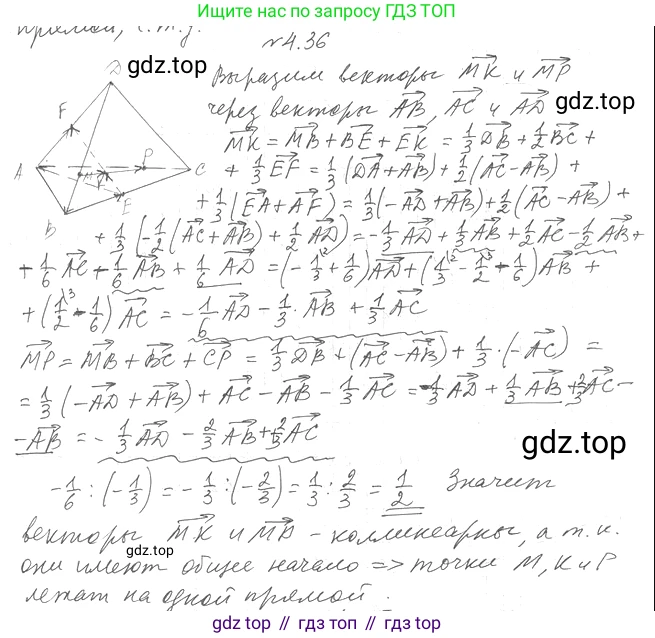 Ищите нас по запросу ГДЗ ТОП
прямой, ч.т.д.
№4.36
gdz.top
Выразим векторы MK и MP
через векторы AB, AC и AD
gdz.top
MK = MB + BE + EK = 1/3 DB + 1/2 BC +
+ 1/3 EF = 1/3 (DA + AB) + 1/2 (AC - AB) +
+ 1/3 (EA + AF) = 1/3 (-AD + AB) + 1/2 (AC - AB) +
+ 1/3 (-1/2 (AC + AB) + 1/2 AD) = -1/3 AD + 1/3 AB + 1/2 AC - 1/2 AB +
+ 1/6 AC - 1/6 AB + 1/6 AD = (-1/3 + 1/6) AD + (1/3 - 1/2 - 1/6) AB +
+ (1/2 - 1/6) AC = -1/6 AD - 1/3 · AB + 1/3 AC
MP = MB + BC + CP = 1/3 DB + (AC - AB) + 1/3 · (-AC) =
= 1/3 (-AD + AB) + AC - AB - 1/3 AC = -1/3 AD + 1/3 AB + 2/3 AC -
- AB = -1/3 AD - 2/3 AB + 2/3 AC
gdz.top
-1/6 : (-1/3) = -1/3 : (-2/3) = 1/3 : 2/3 = 1/2 Значит
векторы MK и MP - коллинеарны, а т.к.
gdz.top
они имеют общее начало => точки M, K и P
лежат на одной прямой.
D
F
A
M
K
P
C
E
B
gdz.top // gdz.top // gdz.top